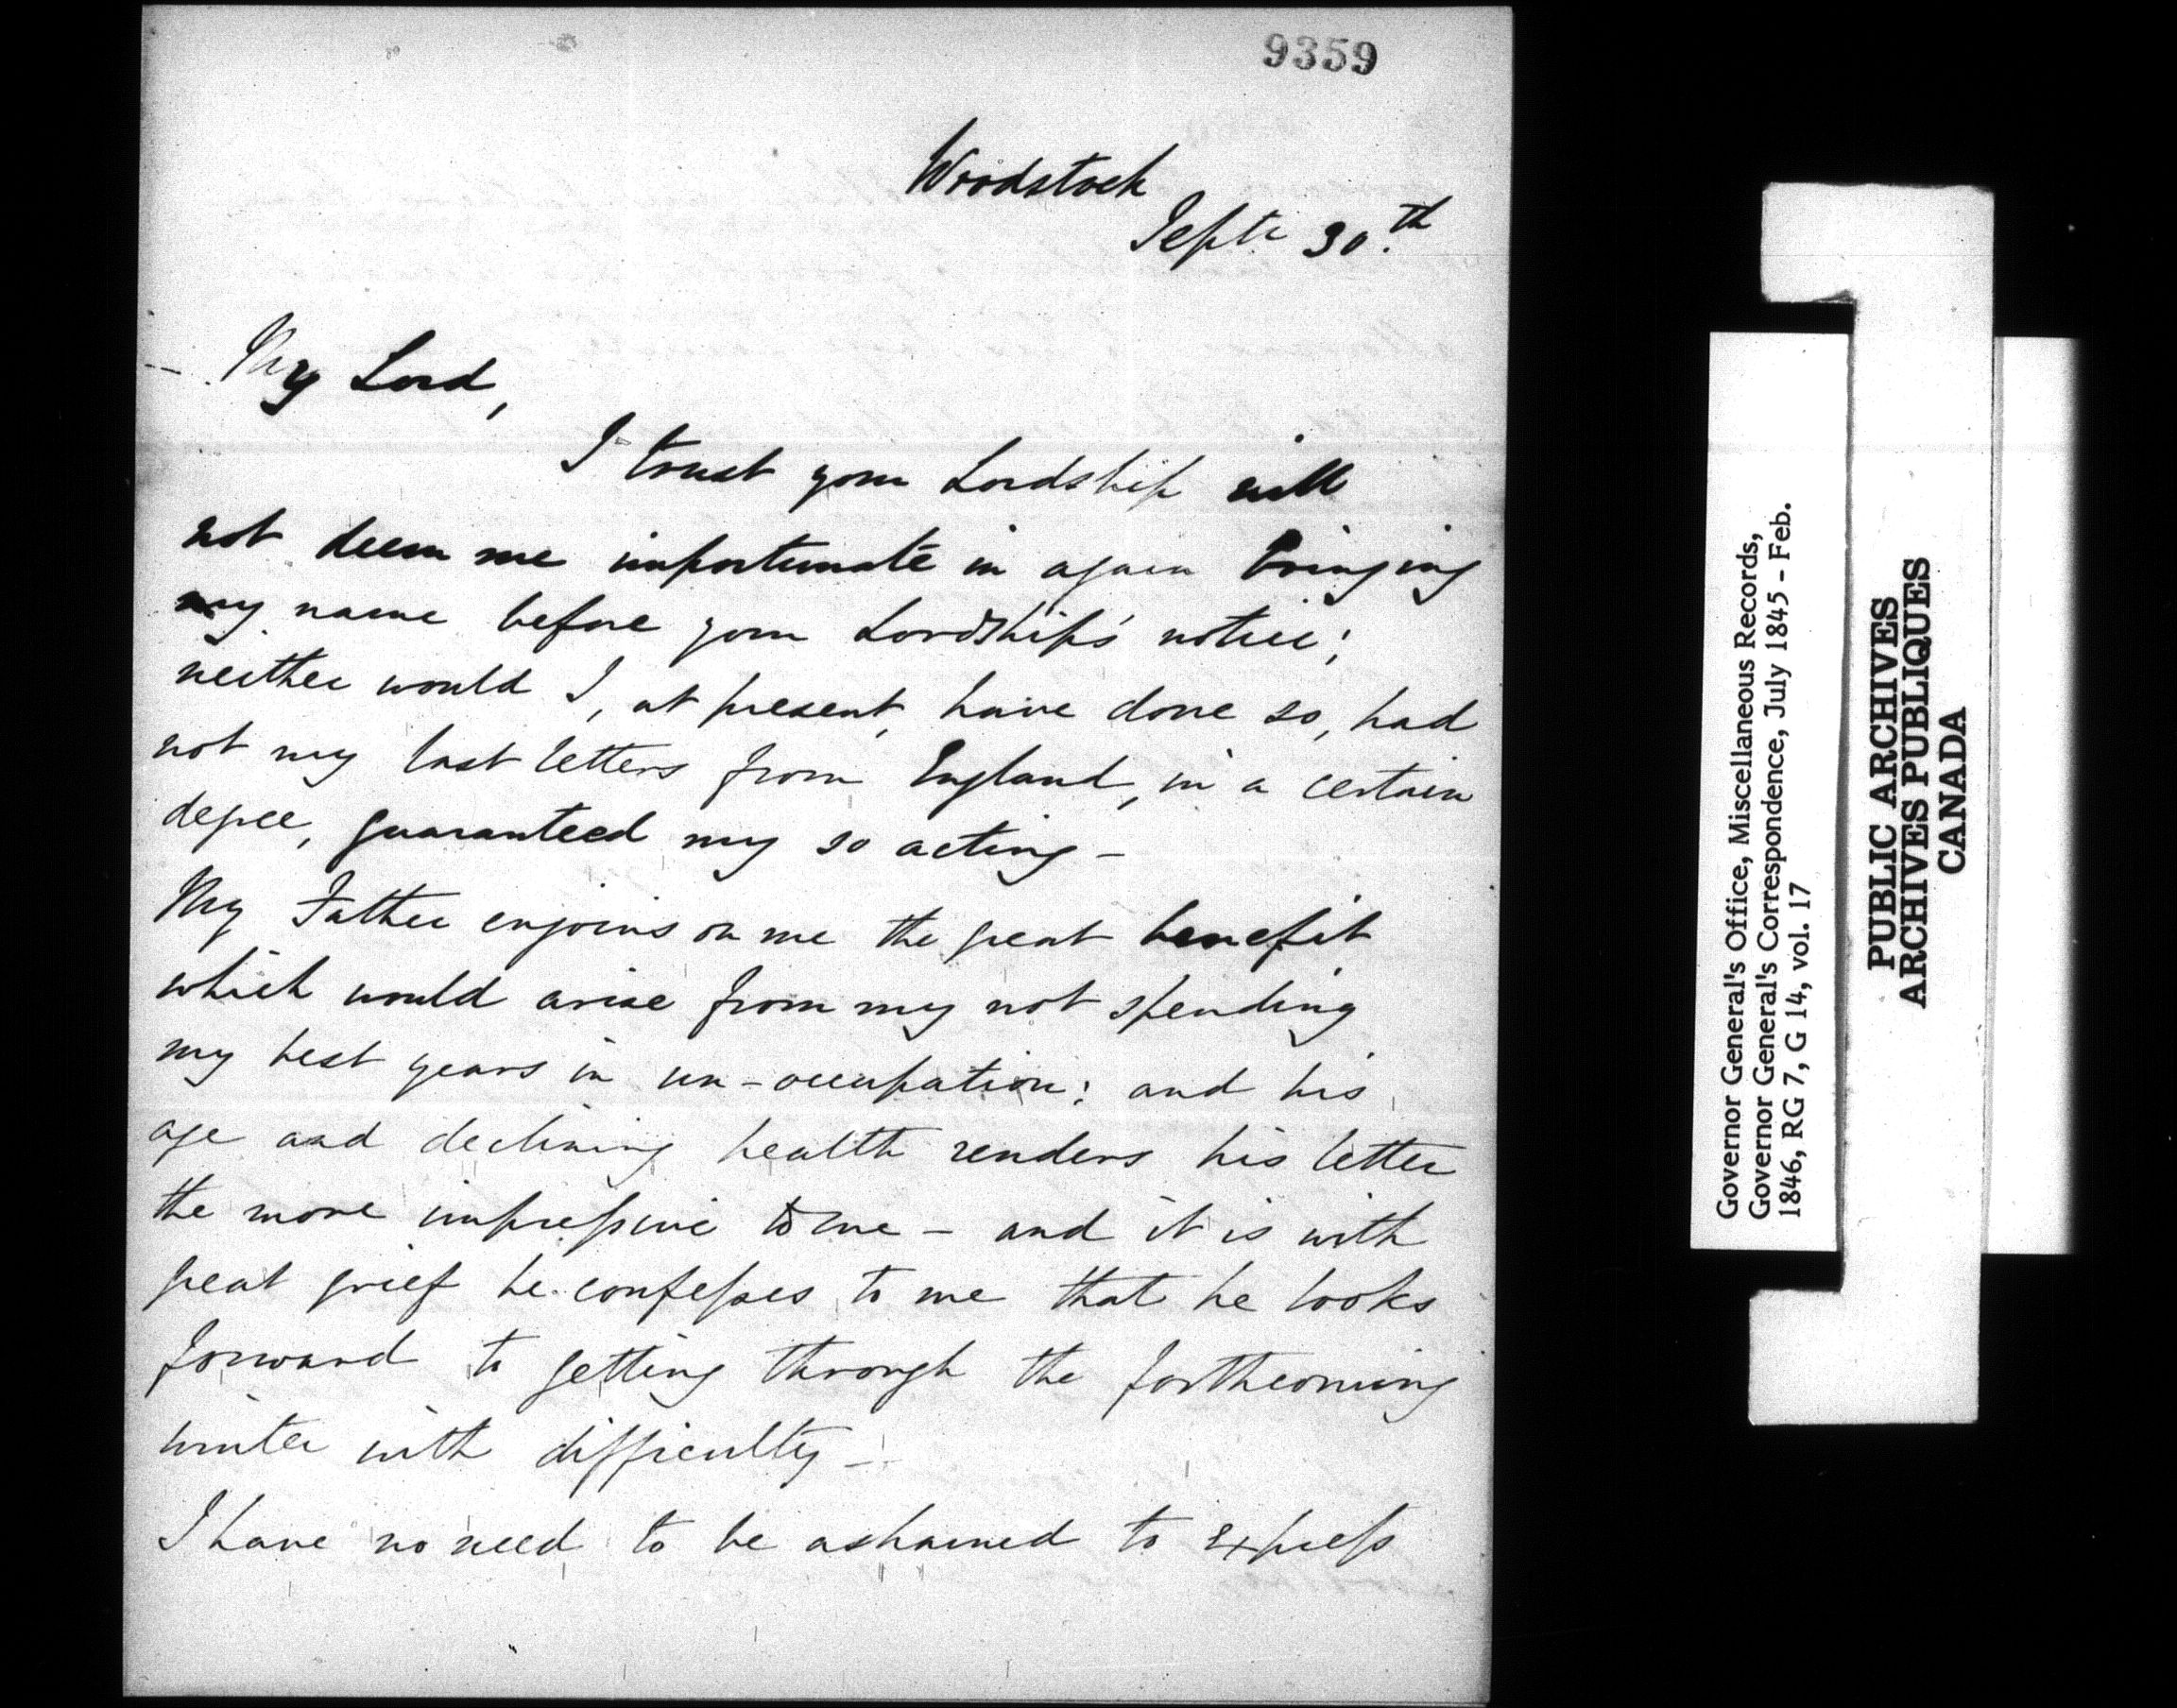 9359
Woodstock
Septr 30.th
My Lord,
I trust your Lordship will
not deem me importunate in again bringing
my name before your Lordship's notice;
neither would I, at present, have done so, had
not my last letters from England, in a certain
degree, guaranteed my so acting -
My Father enjoins on me the great benefit
which would arise from my not spending
my best years in un-occupation: and his
age and declining health renders his letter
the more impressive to me - and it is with
great grief he confesses to me that he looks
forward to getting through the forthcoming
winter with difficulty -
I have no need to be ashamed to express
Governor General's Office, Miscellaneous Records,
Governor General's Correspondence, July 1845 - Feb.
1846, RG 7, G 14, vol. 17
PUBLIC ARCHIVES
ARCHIVES PUBLIQUES
CANADA